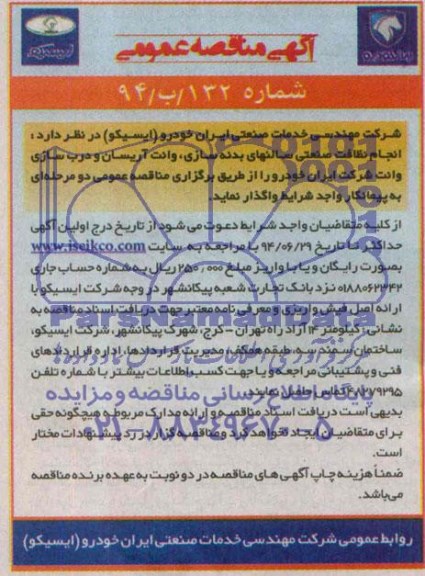 آگهی مناقصه عمومی
شماره ۱۳۲/ب/۹۴
شرکت مهندسی خدمات صنعتی ایران خودرو (ایسیکو) در نظر دارد ؛
انجام نظافت صنعتی سالنهای بدنه سازی، وانت آریسان و درب سازی
وانت شرکت ایران خودرو را از طریق برگزاری مناقصه عمومی دو مرحله‌ای
به پیمانکار واجد شرایط واگذار نماید.
از کلیه متقاضیان واجد شرایط دعوت می شود از تاریخ درج اولین آگهی
حداکثر تا تاریخ ۹۴/۰۶/۲۹ با مراجعه به سایت www.iseikco.com
بصورت رایگان و یا با واریز مبلغ ۲۵۰٫۰۰۰ ریال به شماره حساب جاری
۰۱۸۸۰۶۲۳۴۲ نزد بانک تجارت شعبه پیکانشهر در وجه شرکت ایسیکو با
ارائه اصل فیش واریزی و معرفی نامه معتبر جهت دریافت اسناد مناقصه به
نشانی : کیلومتر ۱۴ آزاد راه تهران – کرج، شهرک پیکانشهر، شرکت ایسیکو،
ساختمان سمند سه، طبقه همکف، مدیریت قراردادها، اداره قراردادهای
فنی و پشتیبانی مراجعه و یا جهت کسب اطلاعات بیشتر با شماره تلفن
تماس حاصل نمایند.
بدیهی است دریافت اسناد مناقصه و ارائه مدارک مربوطه هیچگونه حقی
برای متقاضیان ایجاد نخواهد کرد و مناقصه گزار در رد پیشنهادات مختار
است.
ضمناً هزینه چاپ آگهی های مناقصه در دو نوبت به عهده برنده مناقصه
می‌باشد.
پایگاه اطلاع رسانی مناقصه و مزایده
۰۲۱-۸۸۳۴۹۶۷۰-۵
روابط عمومی شرکت مهندسی خدمات صنعتی ایران خودرو (ایسیکو)